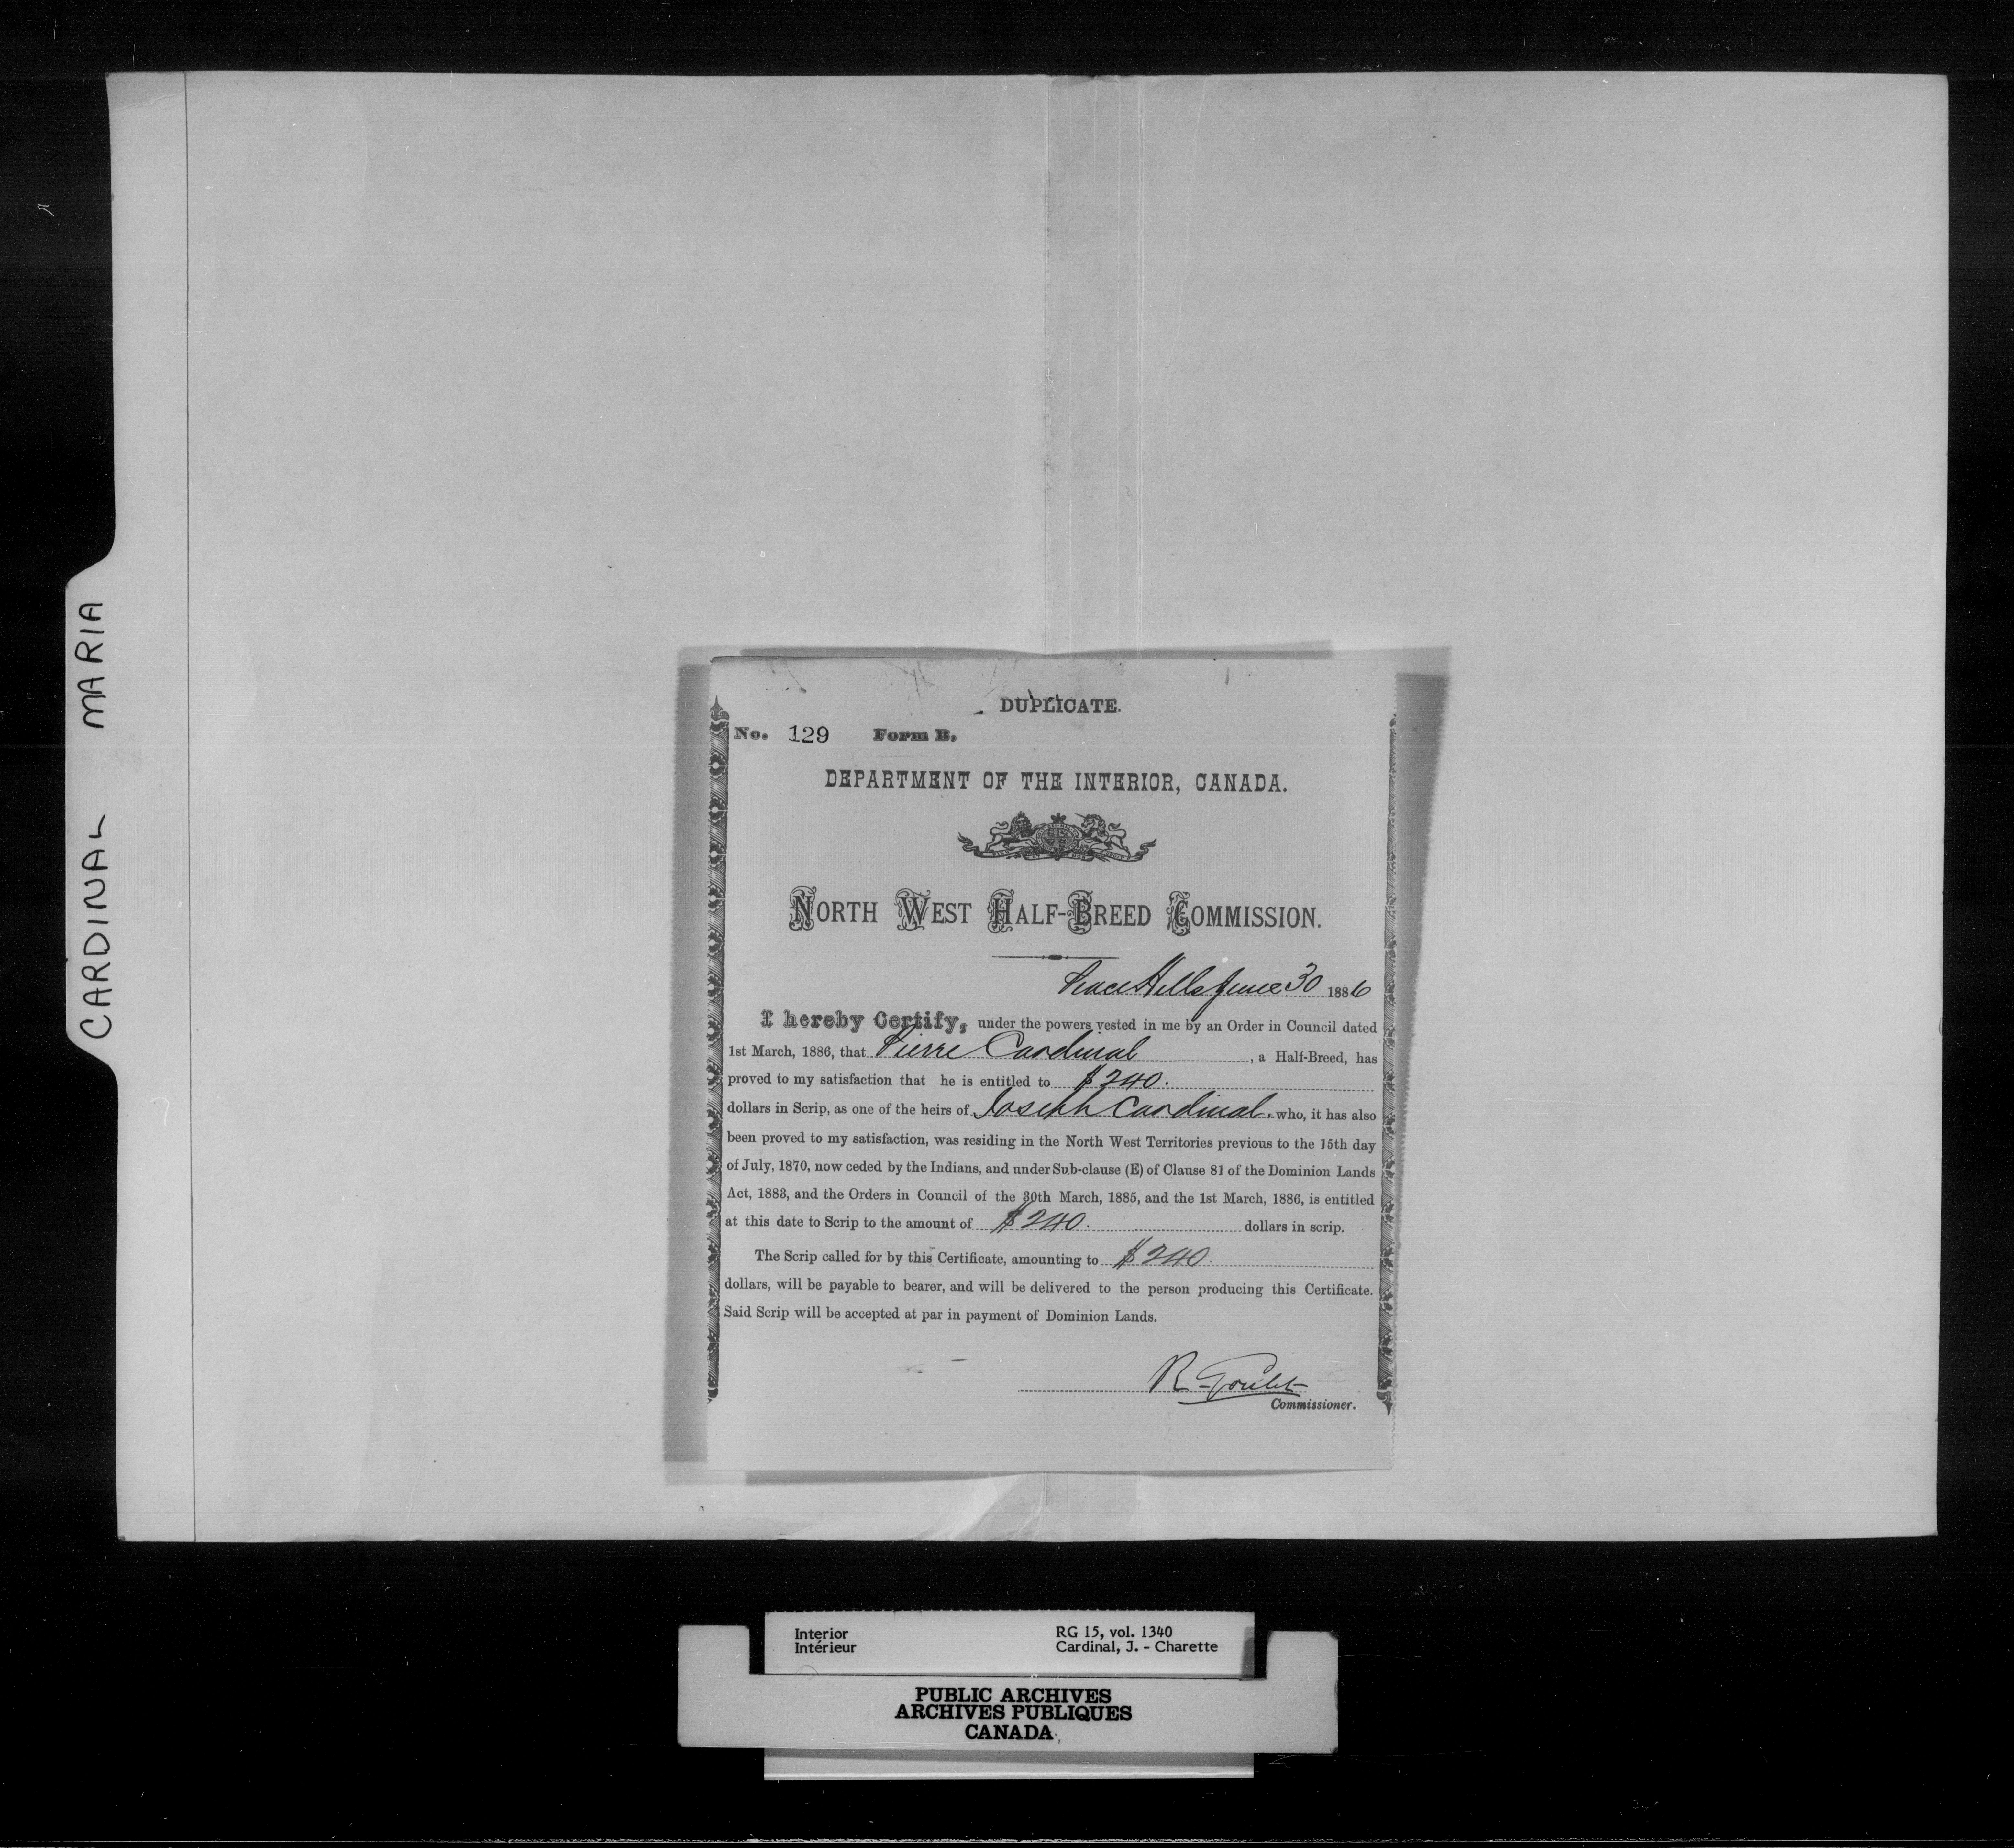 CARDINAL MARIA
DUPLICATE.
No. 129 Form B.
DEPARTMENT OF THE INTERIOR, CANADA.
NORTH WEST HALF-BREED COMMISSION.
Peace Hills June 30 1886
I hereby Certify, under the powers vested in me by an Order in Council dated
1st March, 1886, that Pierre Cardinal, a Half-Breed, has
proved to my satisfaction that he is entitled to $240.
dollars in Scrip, as one of the heirs of Joseph Cardinal, who, it has also
been proved to my satisfaction, was residing in the North West Territories previous to the 15th day
of July, 1870, now ceded by the Indians, and under Sub-clause (E) of Clause 81 of the Dominion Lands
Act, 1883, and the Orders in Council of the 30th March, 1885, and the 1st March, 1886, is entitled
at this date to Scrip to the amount of $240. dollars in scrip.
The Scrip called for by this Certificate, amounting to $240.
dollars, will be payable to bearer, and will be delivered to the person producing this Certificate.
Said Scrip will be accepted at par in payment of Dominion Lands.
R Goulet
Commissioner.
Interior RG 15, vol. 1340
Intérieur Cardinal, J. - Charette
PUBLIC ARCHIVES
ARCHIVES PUBLIQUES
CANADA